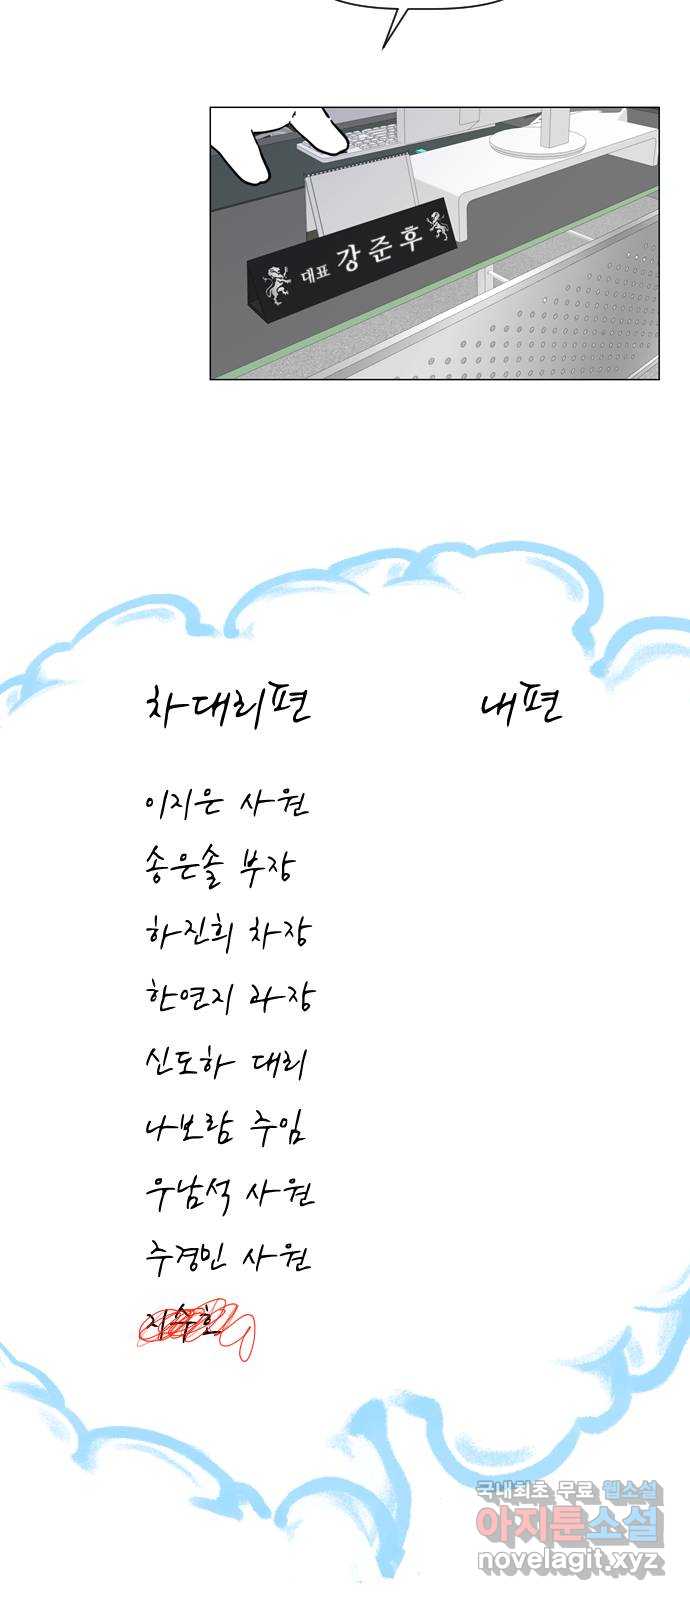 대표 강준후
차대리편 내편
이지은 사원
송은솔 부장
하진희 차장
한연지 과장
신도하 대리
나보람 주임
우남석 사원
주경민 사원
지수호
국내최초 무료 웹소설
아지툰소설
novelagit.xyz